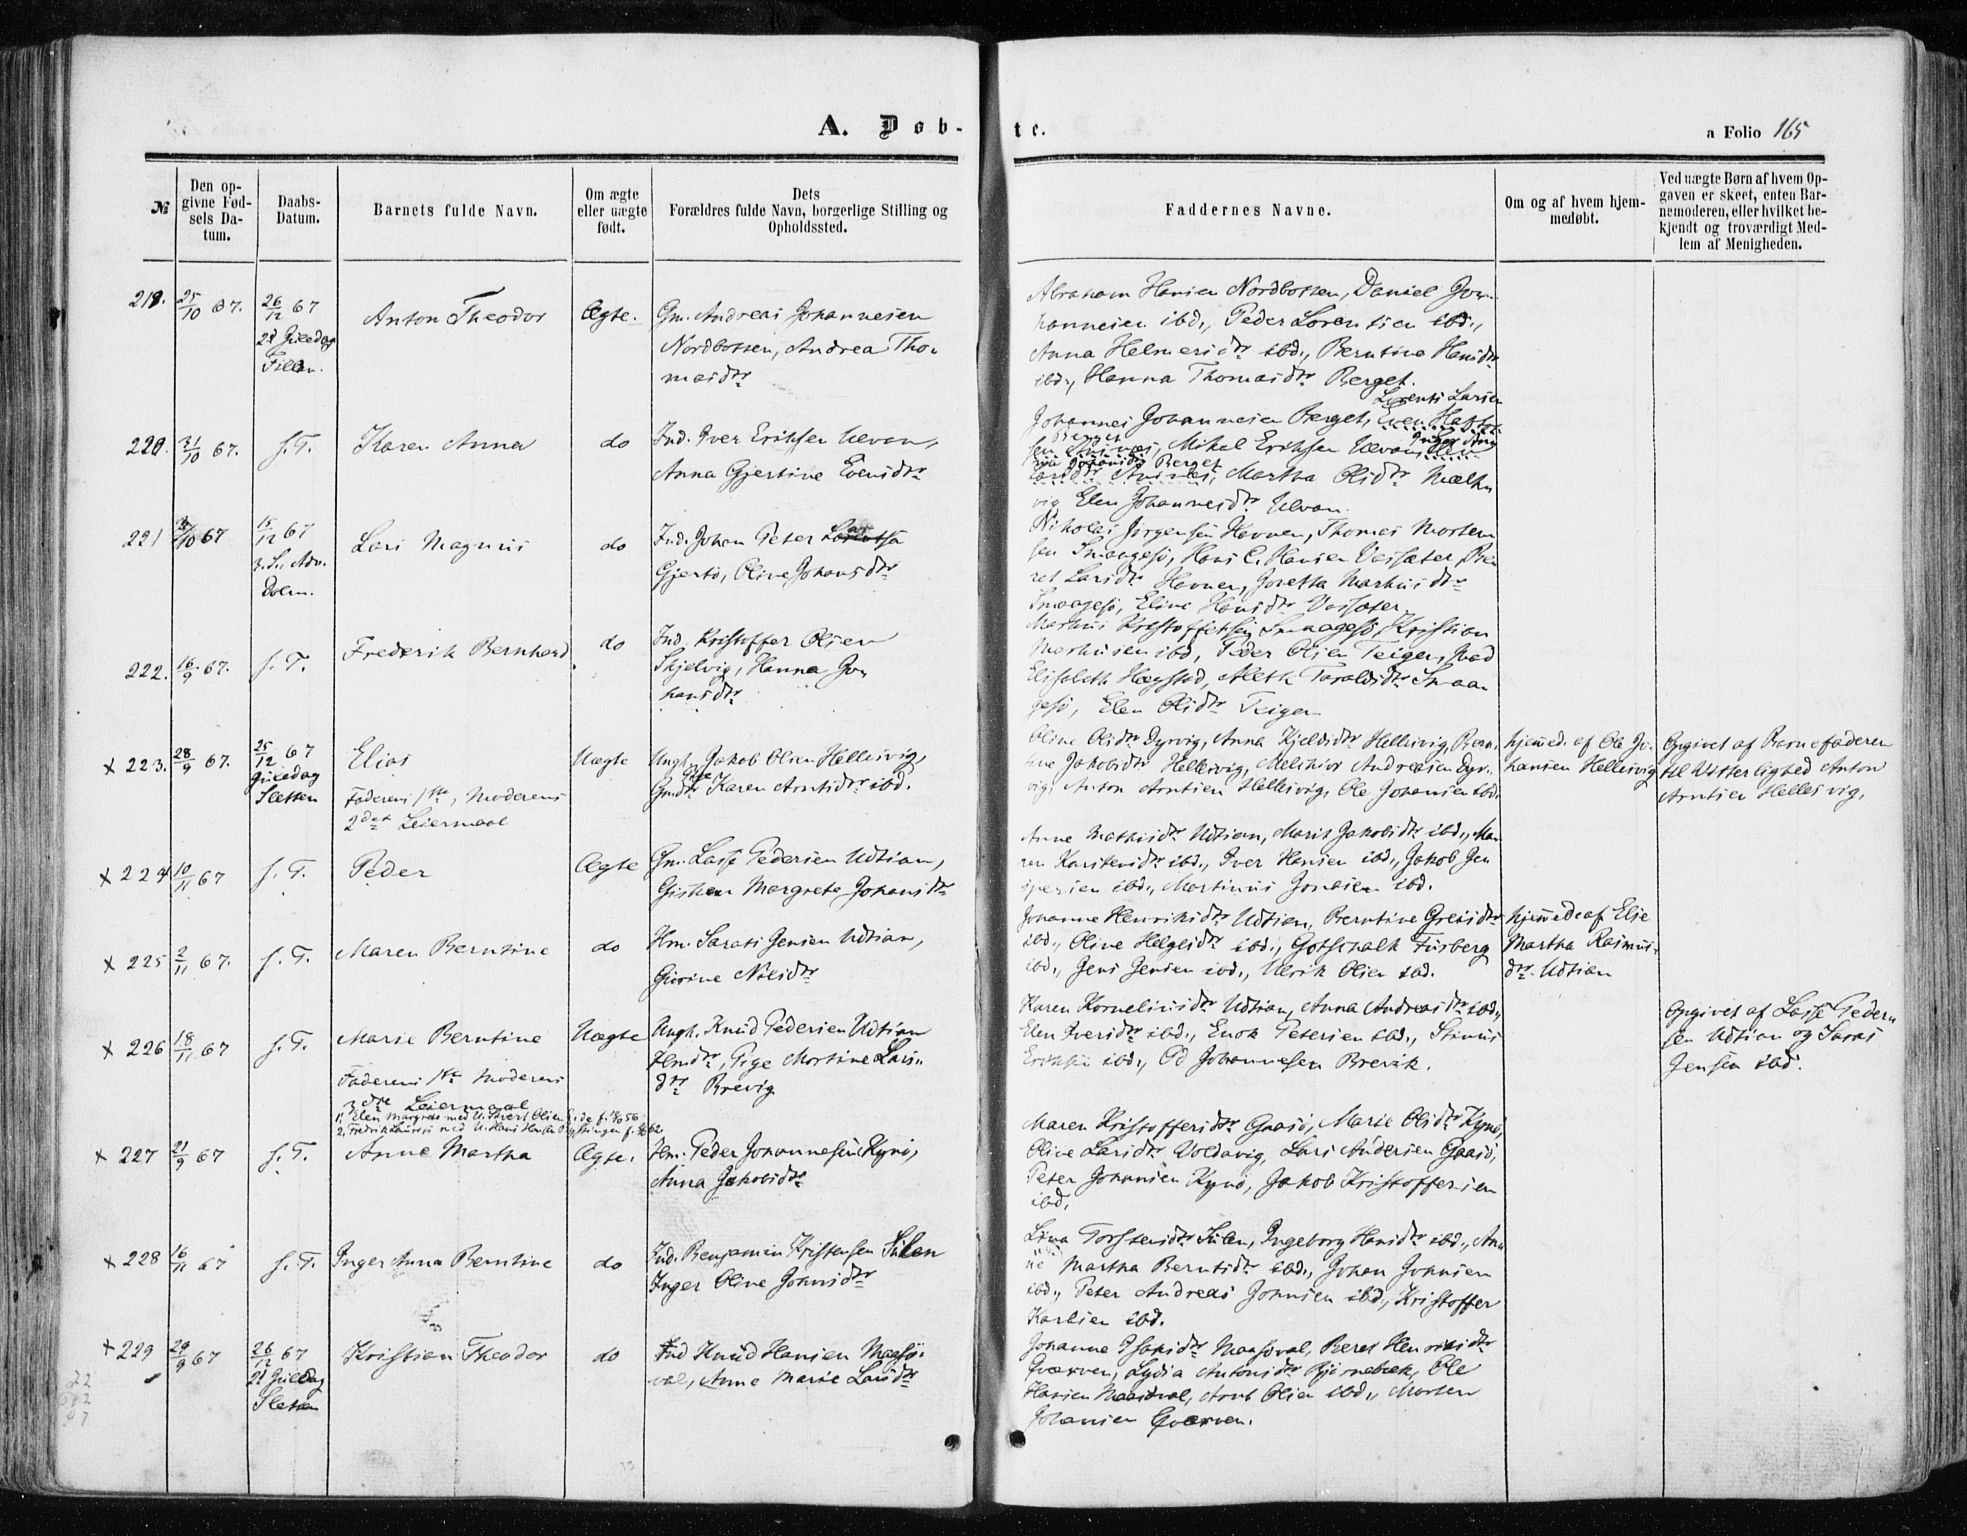 A. Døb-
te.
a Folio 165
№
Den op-
givne Fød-
sels Da-
tum.
Daabs-
Datum.
Barnets fulde Navn.
Om ægte
eller uægte
født.
Dets
Forældres fulde Navn, borgerlige Stilling og
Opholdssted.
Faddernes Navne.
Om og af hvem hjem-
medøbt.
Ved uægte Børn af hvem Op-
gaven er skeet, enten Bar-
nemoderen, eller hvilket be-
kjendt og troværdigt Med-
lem af Menigheden.
219. 25/10 67.
26/12 67
2d Juledag
Fillan.
Anton Theodor
Ægte.
Gm. Andreas Johannesen
Nordbotten, Andrea Tho-
masdtr
Abraham Hansen Nordbotten, Daniel Jo-
hannesen ibd., Peder Lorentsen ibd.,
Anna Helmersdtr ibd., Berntine Hansdtr
ibd., Hanna Thomasdtr Berget.
220. 31/10 67.
s. T.
Karen Anna
do
Ind. Iver Eriksen Ulvan,
Anna Gjertine Evensdtr
Lorents Larsen
Johannes Johannesen Berget,
Berget
Mikal Eriksen Ulvan,
Johansdtr Berget
Martha Olsdtr
Elen Johannesdtr Ulvan.
221 /10 67
15/12 67
3. S. Adv.
Dolm.
Lars Magnus
do
Ind. Johan Peter
Gjertø, Oline Johansdtr
Nikolai Jørgensen Havnen, Thomas Morten-
sen Smaagesø, Hans C. Hansen Vassæter, Be-
ret Larsdtr Havnen, Joretta Markusdtr
Smaagesø, Eline Hansdtr Vassæter
222. 16/9 67.
s. T.
Frederik Bernhard
do
Ind. Kristoffer Olsen
Skjelvig, Hanna Jo-
hansdtr
Markus Kristoffersen Smaagesø, Kristian
Markusen ibd, Peder Olsen Teigen,
Elisabeth Hægstad, Aleth Taraldsdtr Smaa-
gesø, Elen Olsdtr Teigen
x 223. 28/9 67.
25/12 67
Juledag
Sletten
Elias
Faderens 1ste, Moderens
2det Leiermaal
Uægte
Ungk. Jakob Olsen Hellesvig,
Pige Karen Arntsdtr ibd.
Oline Olsdtr Dyrvig, Anna Kjeldsdtr Hellesvig, Bern-
tine Jakobsdtr Hellesvig, Melkior Andreasen Dyr-
vig, Anton Arntsen Hellesvig, Ole Johansen ibd.
hjemed. af Ole Jo-
hansen Hellesvig
Opgivet af Barnefaderen
til Vitterlighed Anton
Arntsen Hellesvig,
x 224 10/11 67
s. T.
Peder
Ægte
Gm. Lasse Pedersen Udtian,
Margrete Johansdtr
Anne Mathisdtr Udtian, Marit Jakobsdtr ibd., Ma-
ren Karstensdtr ibd., Iver Hansen ibd., Jakob Jen
spersen ibd., Martinus Jonasen ibd.
x 225 2/11 67.
s. T.
Maren Berntine
do
Hm. Saras Jensen Udtian,
Gurine Nilsdtr
Johanne Henriksdtr Udtian, Berntine Greisdtr
ibd., Oline Helgesdtr ibd., Gotschalk Fusberg
ibd., Jens Jensen ibd., Ulrik Olsen ibd.
hjemede af Else
Martha Rasmus-
dtr. Udtian
x 226 18/11 67
s. T.
Marie Berntine
Faderens 1ste Moderens
3die Leiermaal
Uægte
Ungk. Knud Pedersen Udtian
Pige Martine Lars-
dtr Brevig
Karen Korneliusdtr Udtian, Anna Andreasdtr ibd.,
Elen Iversdtr ibd., Enok Petersen ibd., Stinus
Eriksen ibd., Od Johannesen Brevik.
Opgivet af Lasse Peder-
sen Udtian og Saras
Jensen ibd.
x 227 21/9 67
s. T.
Anne Martha
Ægte.
Hm. Peder Johannesen Kynø,
Anna Jakobsdtr
Maren Kristoffersdtr Gaasø, Marie Olsdtr Kynø,
Oline Larsdtr Voldavig, Lars Andersen Gaasø,
Peter Johansen Kynø, Jakob Kristoffersen
ibd.
x 228 16/11 67
s. T.
Inger Anna Berntine
do
Ind. Benjamin Kristensen Sulen
Inger Oline Johnsdtr
Lina Torstensdtr Sulen, Ingeborg Hansdtr ibd., An-
ne Martha Berntsdtr ibd., Johan Johnsen
ibd., Peter Andreas Johnsen ibd., Kristoffer
Karlsen ibd.
x 229 29/9 67
26/12 67
2d Juledag
Sletten
Kristian Theodor
do
Ind Knud Hansen Maasø-
val, Anne Marie Larsdtr
Johanne Isaksdtr Maasøval, Beret Henriksdtr
Qværven, Lydia Antonsdtr Bjørnebæk, Ole
Hansen Maasøval, Arnt Olsen ibd., Morten
Johansen Qværven.